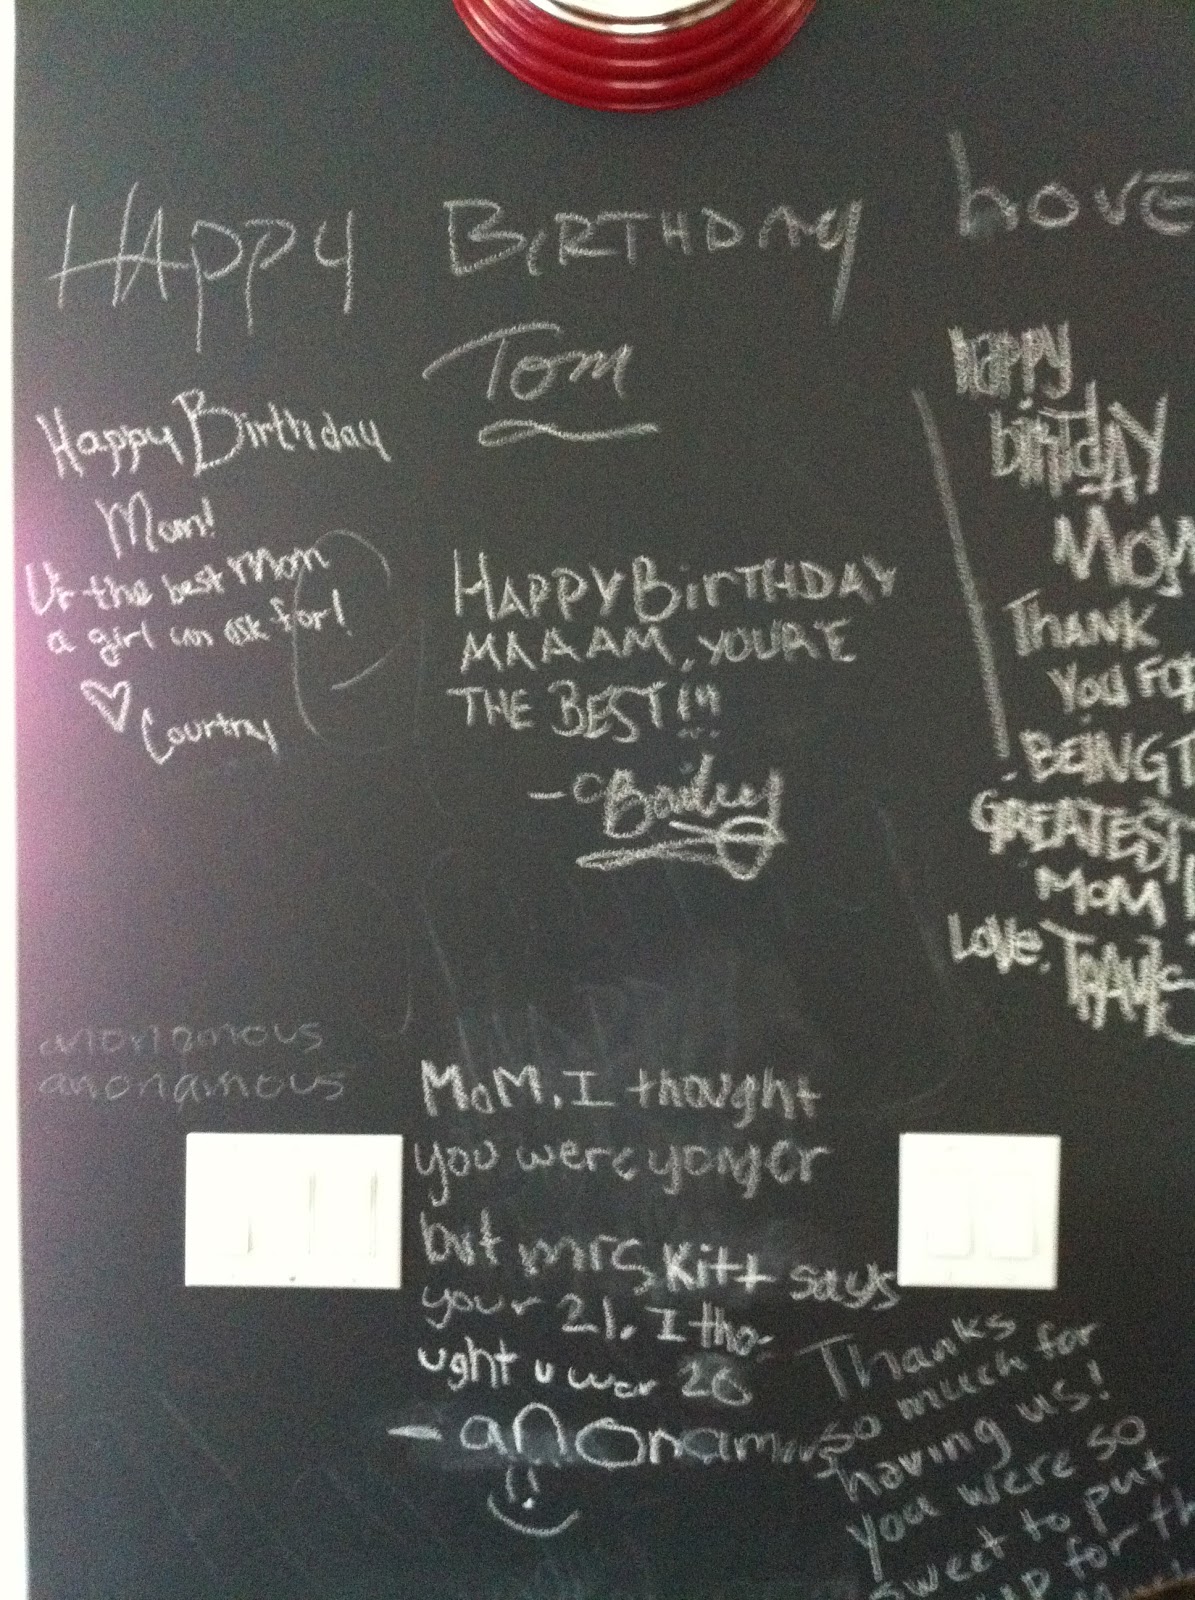 HAPPY BIRTHDAY
Tom
Happy Birthday
Mom!
Ur the best mom
a girl can ask for!
♡ Courtney
HAPPY BIRTHDAY
MAAAAM, YOU'RE
THE BEST!!!
- Bailey
HAPPY
BIRTDAY
MOM
THANK
YOU FOR
BEING
GREATEST
MOM
LOVE,
anonamous
anonamous
MoM, I thought
you were yonger
but mrs Kitt says
your 21. I tho-
ught u wer 20
- anonamous
Thanks
so much for
having us!
you were so
sweet to put
up for